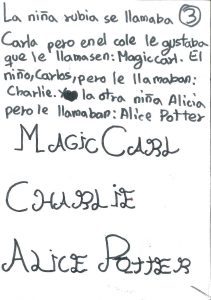 La niña rubia se llamaba ③
Carla pero en el cole le gustaba
que le llamasen: Magiccarl. El
niño, Carlos, pero le llamaban:
Charlie. Y la otra niña Alicia
pero le llamaban: Alice Potter
MAGIC CARL
CHARLIE
ALICE POTTER